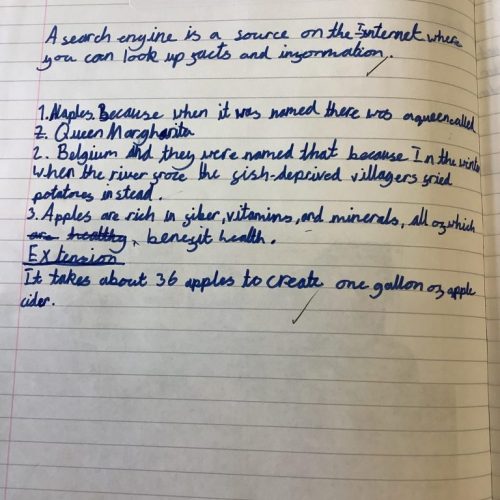 A search engine is a source on the Internet where
you can look up facts and information.
1. Naples. Because when it was named there was a queen called
2. Queen Margharita
2. Belgium and they were named that because In the winter
when the river froze the fish-deprived villagers fried
potatoes instead.
3. Apples are rich in fiber, vitamins, and minerals, all of which
are healthy, benefit health.
Extension
It takes about 36 apples to create one gallon of apple
cider.